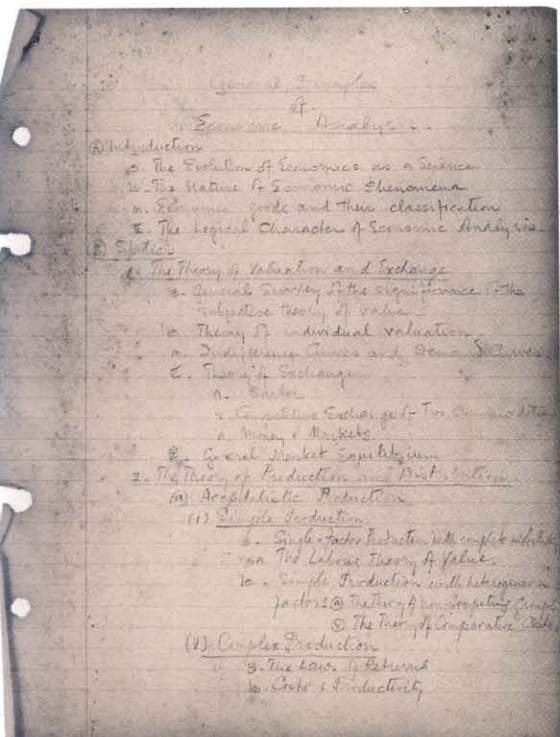 General Principles
of
Economic Analysis.
Introduction
The Evolution of Economics as a Science
The Nature of Economic Phenomena
Economic goods and their classification
The Logical Character of Economic Analysis
Statics
The Theory of Valuation and Exchange
General Survey of the significance of the
subjective theory of value
Theory of individual valuation
Indifference Curves and Demand Curves
Theory of Exchange
Barter
Competitive Exchange of Two Commodities
Money & Markets
General Market Equilibrium
2. The Theory of Production and Distribution
(a) Acapitalistic Production
(1) Simple Production
Single-Factor Production with complete
The Labour Theory of Value.
Simple Production with heterogeneous
factors The Theory of non Competing Groups
The Theory of Comparative Costs
(2) Complex Production
The Laws of Returns
Costs & Productivity